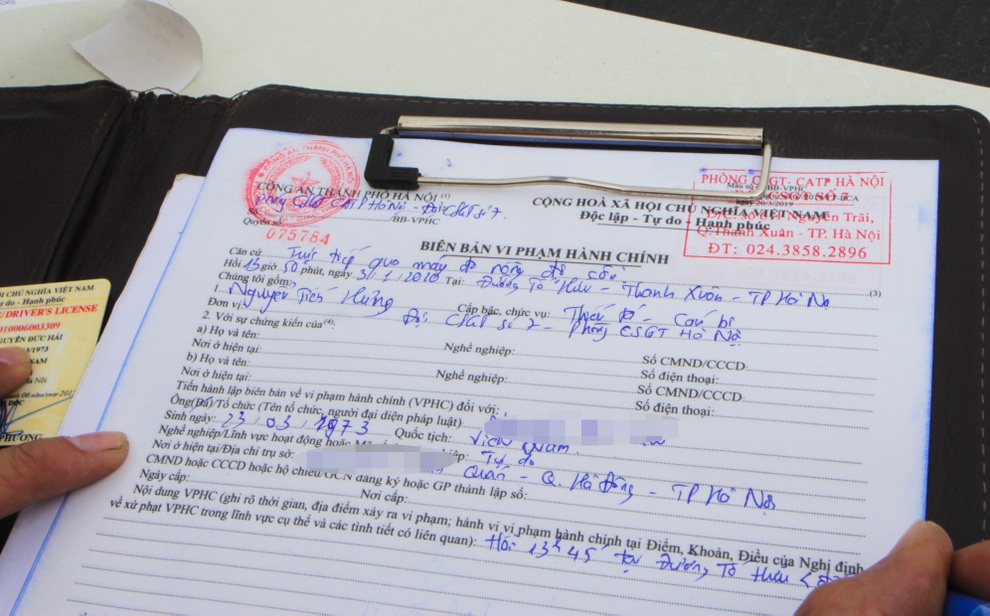 CÔNG AN THÀNH PHỐ HÀ NỘI (1)
Phòng CSGT CATP Hà Nội - Đội CSGT số 7
Số: /BB-VPHC
Quyển số:
075784
PHÒNG CSGT- CATP HÀ NỘI
Nguyễn Trãi,
Q.Thanh Xuân - TP. Hà Nội
ĐT: 024.3858.2896
CỘNG HOÀ XÃ HỘI CHỦ NGHĨA VIỆT NAM
Độc lập - Tự do - Hạnh phúc
BIÊN BẢN VI PHẠM HÀNH CHÍNH
Căn cứ Trực tiếp qua máy đo nồng độ cồn
Hồi 13 giờ 50 phút, ngày 3/1/2020 Tại: Đường Tố Hữu - Thanh Xuân - TP Hà Nội (3)
Chúng tôi gồm:
1. Nguyễn Tiến Hưng Cấp bậc, chức vụ: Thiếu tá - Cán bộ
Đơn vị: Đội CSGT số 7 - Phòng CSGT Hà Nội
2. Với sự chứng kiến của(4):
a) Họ và tên: Nghề nghiệp: Số CMND/CCCD:
Nơi ở hiện tại: Số điện thoại:
b) Họ và tên: Nghề nghiệp: Số CMND/CCCD:
Nơi ở hiện tại: Số điện thoại:
Tiến hành lập biên bản về vi phạm hành chính (VPHC) đối với:
Ông(Bà)/Tổ chức (Tên tổ chức, người đại diện pháp luật):
Sinh ngày: 23/03/1973 Quốc tịch: Việt Nam
Nghề nghiệp/Lĩnh vực hoạt động hoặc Tự do
Nơi ở hiện tại/Địa chỉ trụ sở: Quán - Q. Hà Đông - TP Hà Nội
CMND hoặc CCCD hoặc hộ chiếu/GCN đăng ký hoặc GP thành lập số:
Ngày cấp: Nơi cấp:
Nội dung VPHC (ghi rõ thời gian, địa điểm xảy ra vi phạm; hành vi vi phạm hành chính tại Điểm, Khoản, Điều của Nghị định
về xử phạt VPHC trong lĩnh vực cụ thể và các tình tiết có liên quan): Hồi 13h45 tại Đường Tố Hữu
CHỦ NGHĨA VIỆT NAM
do - Hạnh phúc
/DRIVER'S LICENSE
010006003309
UYỄN ĐỨC HẢI
/1973
NAM